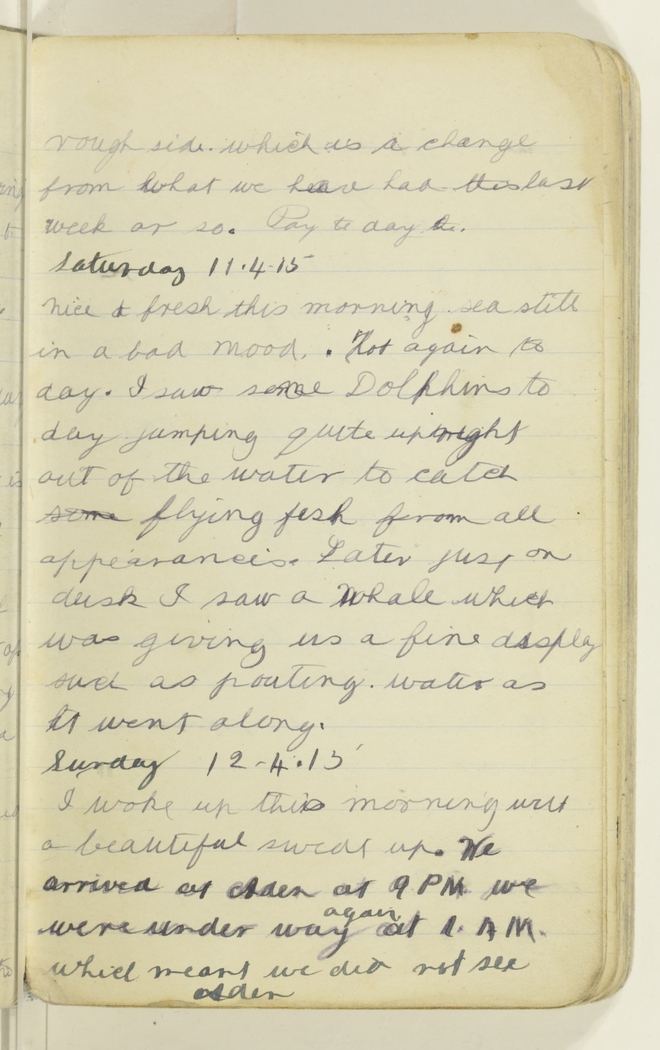 rough side. which is a change
from what we have had this last
week or so. Pay to day
Saturday 11.4.15
nice & fresh this morning sea still
in a bad mood. . Hot again to
day. I saw some Dolphins to
day jumping quite upright
out of the water to catch
some flying fish from all
appearances. Later just on
dusk I saw a Whale which
was giving us a fine display
such as pouting. water as
it went along.
Sunday 12-4.15
I woke up this morning with
a beautiful sweat up. We
arrived at Aden at 9 PM we
were under way again at 1. A M.
which meant we did not see
Aden